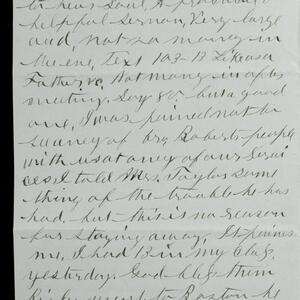 to hear Saul, & preached a
helpful sermon, Very large
aud, not so many in
the eve, Text 103-13 Like as a
Father &c. Not many in after
meeting. Say 80 but a good
one, I was pained not to
see any of bro Roberts people
with us at any of our Servi
ces I told Mrs. Taylor some
thing of the trouble he has
had, but this is no reason
for staying away, It pains
me, I had 13 in my Class
yesterday. God bless them
went to Boston he